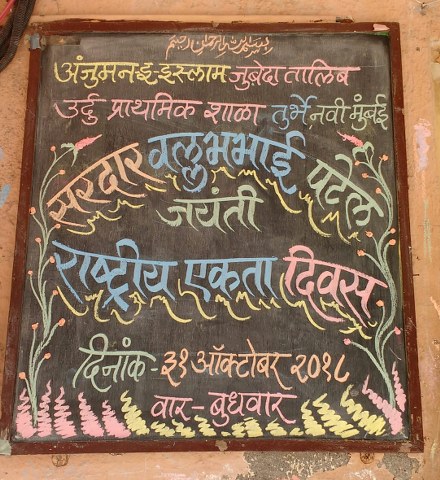 بسم الله الرحمن الرحیم
अंजुमन-इ-इस्लाम जुबेदा तालिब
उर्दु प्राथमिक शाळा तुर्भे, नवी मुंबई
सरदार वल्लुभभाई पटेल
जयंती
राष्ट्रीय एकता दिवस
दिनांक - ३१ ऑक्टोबर २०१८
वार - बुधवार